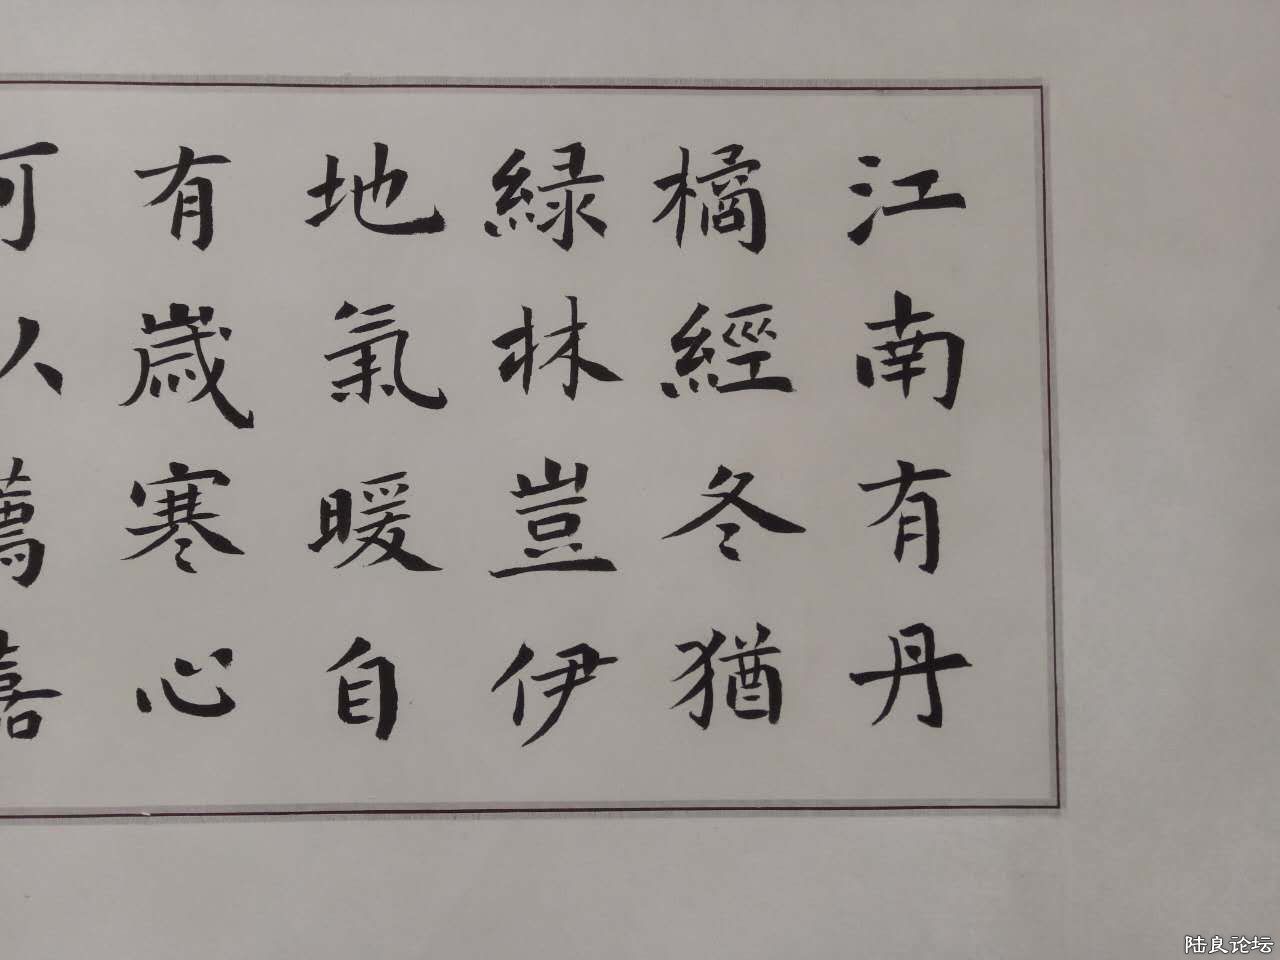 江南有丹
橘經冬猶
緑林豈伊
地氣暖自
有歳寒心
可人薦嘉
陆良论坛